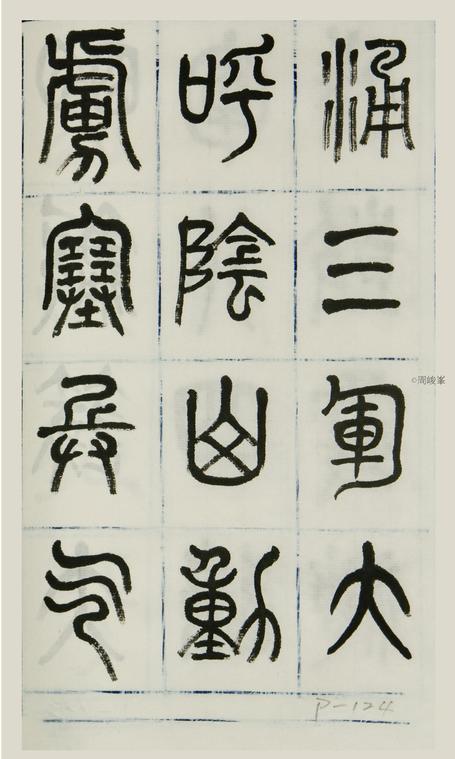 涌三軍大
呼陰山動
虜塞兵气
P-124
©周峻峯